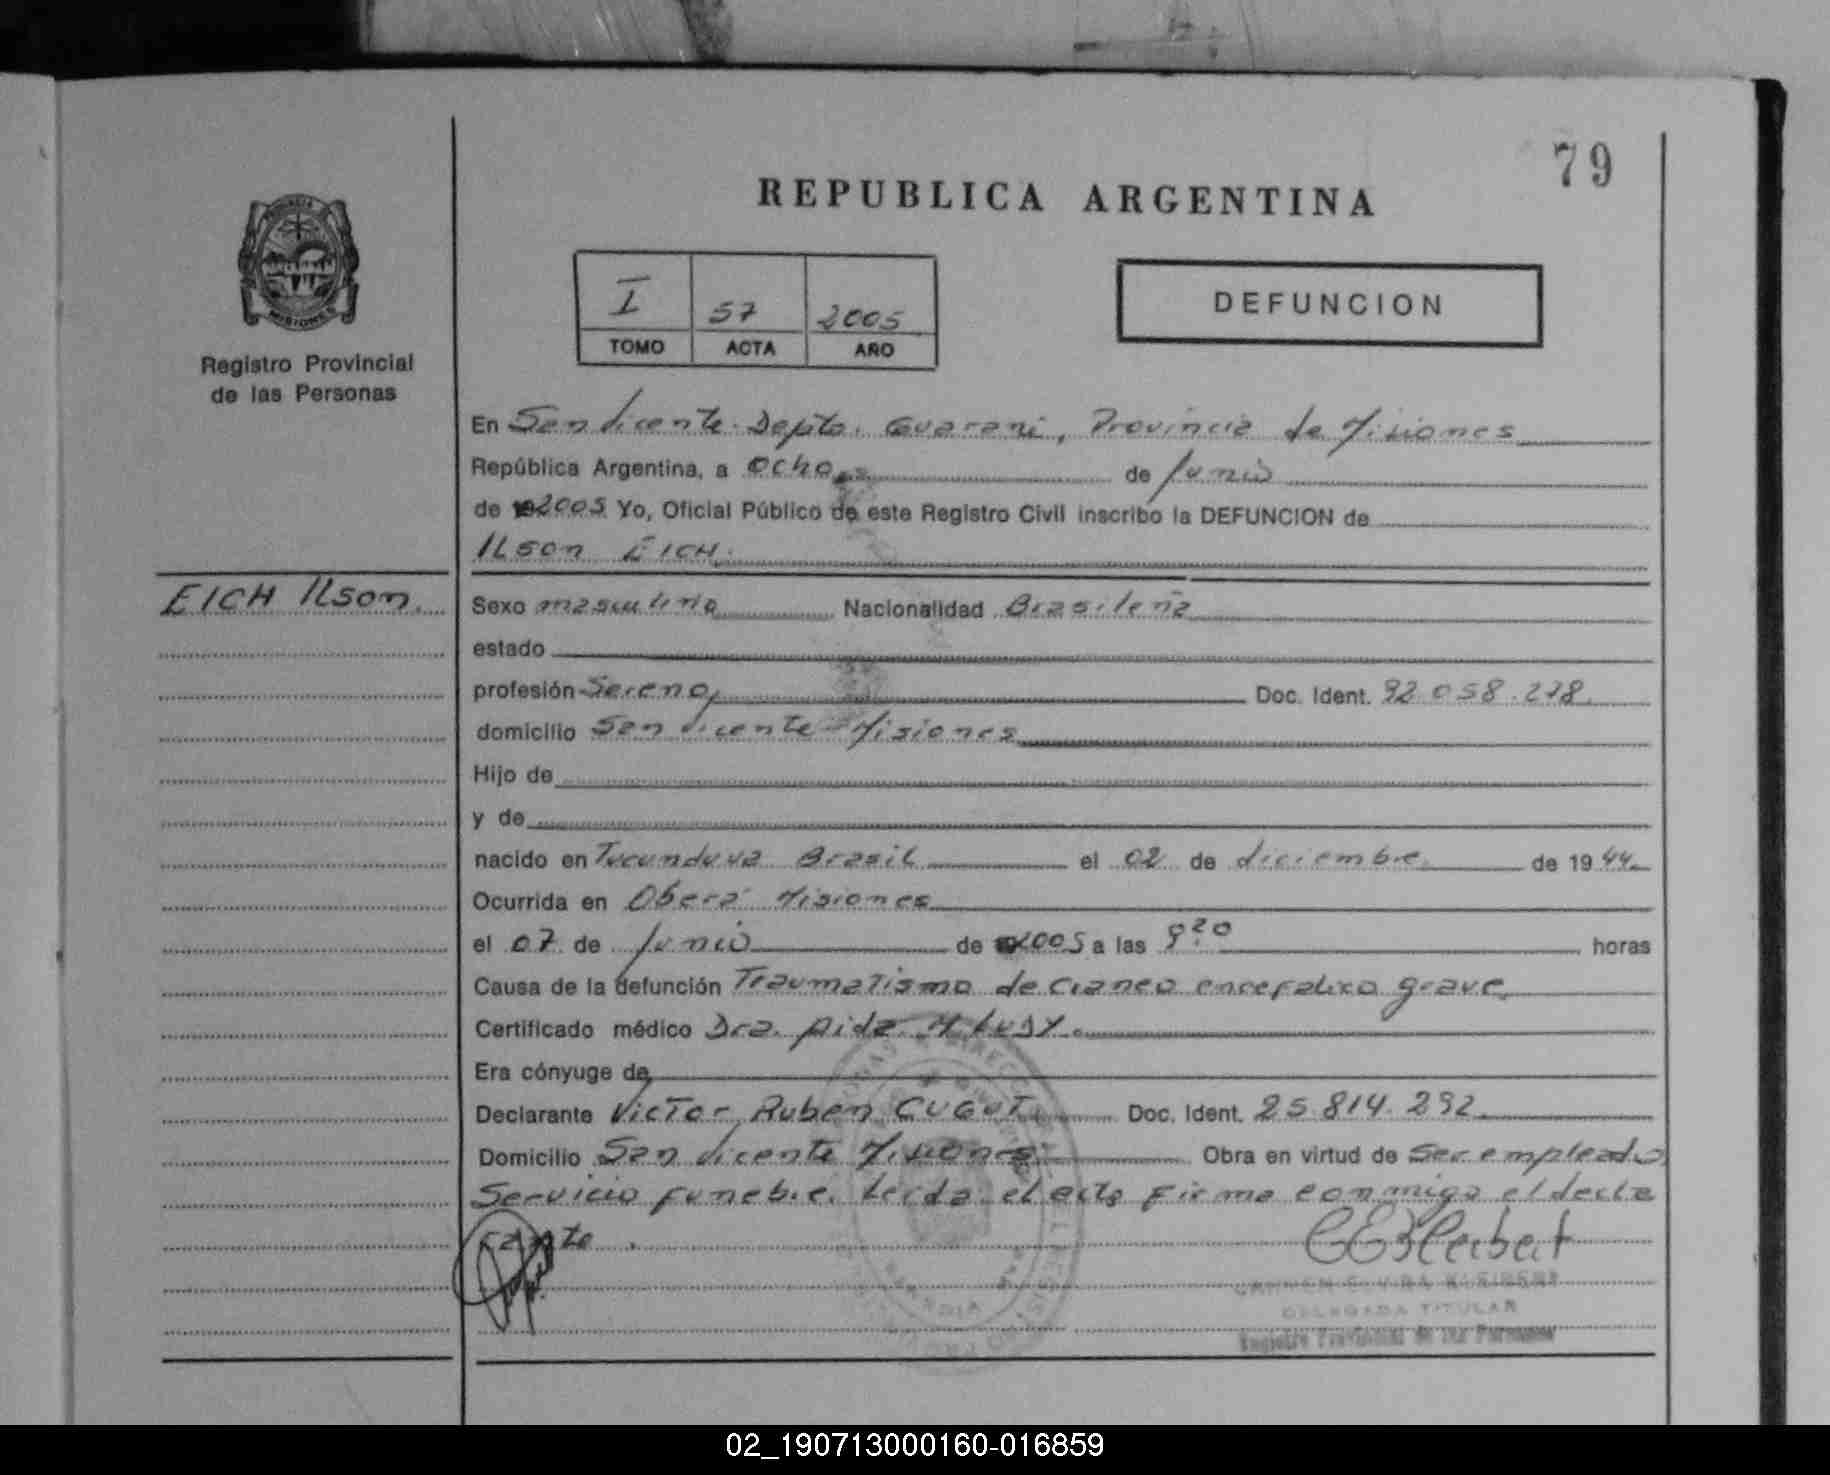 79
REPUBLICA ARGENTINA
PROVINCIA DE
MISIONES
Registro Provincial
de las Personas
I 57 2005
TOMO ACTA AÑO
DEFUNCION
En San Vicente Depto. Guarani, Provincia de Misiones
República Argentina, a ocho de Junio
de 2005 Yo, Oficial Público de este Registro Civil inscribo la DEFUNCION de
Ilson EICH.
EICH Ilson.
Sexo masculino Nacionalidad Brasileña
estado
profesión Sereno, Doc. Ident. 92.058.278.
domicilio San Vicente Misiones
Hijo de
y de
nacido en Tucunduva Brasil el 02 de diciembre de 1944
Ocurrida en Oberá Misiones
el 07 de Junio de 2005 a las 9 20 horas
Causa de la defunción Traumatismo de craneo encefalico grave
Certificado médico Dra. Aida M.
Era cónyuge de
Declarante Victor Ruben Doc. Ident. 25.814.292
Domicilio San Vicente Misiones Obra en virtud de Ser empleado
Servicio funebre. Leida el acta firma conmigo el decla
rante.
DELEGADA TITULAR
Registro Provincial de las Personas
02_190713000160-016859